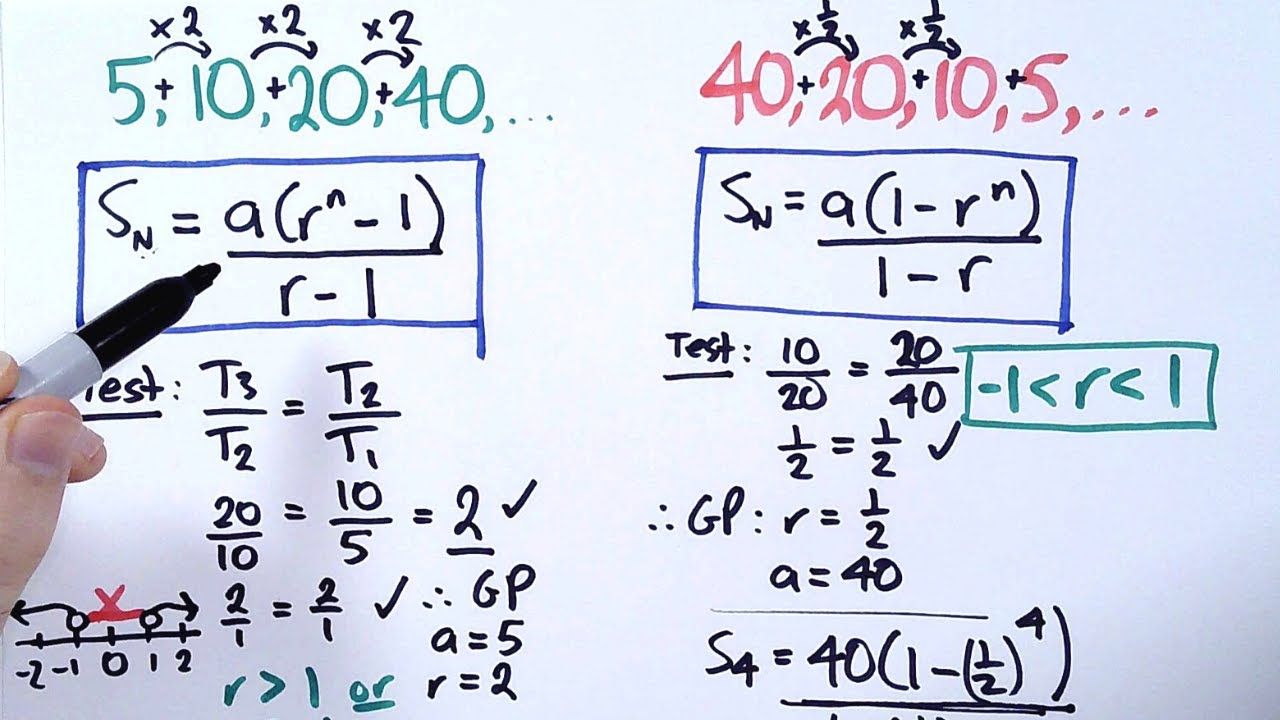 ×2 ×2 ×2
5, + 10, + 20, + 40, ...
S_N = a(r^n - 1) / r - 1
Test: T3/T2 = T2/T1
20/10 = 10/5 = 2 ✓
2/1 = 2/1 ✓ ∴ GP
a = 5
r > 1 or r = 2
x
-2 -1 0 1 2
×1/2 ×1/2
40, + 20, + 10, + 5, ...
S_N = a(1 - r^n) / 1 - r
Test: 10/20 = 20/40
-1 < r < 1
1/2 = 1/2 ✓
∴ GP: r = 1/2
a = 40
S4 = 40(1 - (1/2)^4)